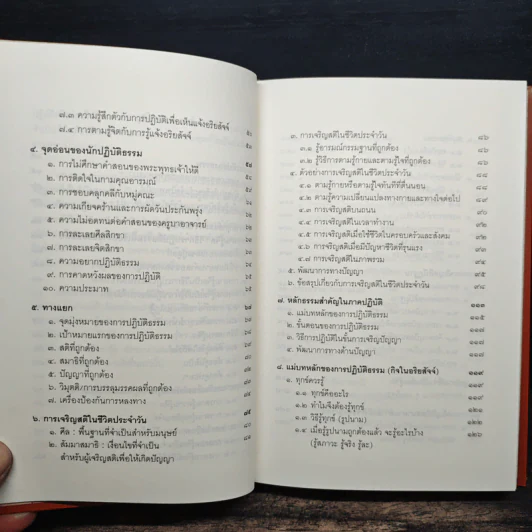 ๘.๓ ความรู้สึกตัวกับการปฏิบัติเพื่อเห็นแจ้งอริยสัจจ์
๘.๔ การตามรู้จิตกับการรู้แจ้งอริยสัจจ์
๔. จุดอ่อนของนักปฏิบัติธรรม
๑. การไม่ศึกษาคำสอนของพระพุทธเจ้าให้ดี
๒. การติดใจในกามคุณอารมณ์
๓. การชอบคลุกคลีกับหมู่คณะ
๔. ความเกียจคร้านและการผัดวันประกันพรุ่ง
๕. ความไม่อดทนต่อคำสอนของครูบาอาจารย์
๖. การละเลยศีลสิกขา
๗. การละเลยจิตสิกขา
๘. ความอยากปฏิบัติธรรม
๙. การคาดหวังผลของการปฏิบัติ
๑๐. ความประมาท
๕. ทางแยก
๑. จุดมุ่งหมายของการปฏิบัติธรรม
๒. เป้าหมายแรกของการปฏิบัติธรรม
๓. สติที่ถูกต้อง
๔. สมาธิที่ถูกต้อง
๕. ปัญญาที่ถูกต้อง
๖. วิมุตติ/การบรรลุมรรคผลที่ถูกต้อง
๗. เครื่องป้องกันการหลงทาง
๖. การเจริญสติในชีวิตประจำวัน
๑. ศีล : พื้นฐานที่จำเป็นสำหรับมนุษย์
๒. สัมมาสมาธิ : เงื่อนไขที่จำเป็น
สำหรับผู้เจริญสติเพื่อให้เกิดปัญญา
๓. การเจริญสติในชีวิตประจำวัน ๘๖
๓.๑ รู้อารมณ์กรรมฐานที่ถูกต้อง ๘๖
๓.๒ รู้วิธีการตามรู้กายและตามรู้ใจที่ถูกต้อง
๔. ตัวอย่างการเจริญสติในชีวิตประจำวัน ๘๘
๔.๑ ตามรู้กายหรือตามรู้ใจทันทีที่ตื่นนอน
๔.๒ ตามรู้ความเปลี่ยนแปลงทางกายและทางใจต่อไป
๔.๓ การเจริญสติบนถนน
๔.๔ การเจริญสติในเวลาทำงาน
๔.๕ การเจริญสติเมื่อใช้ชีวิตในครอบครัวและสังคม
๔.๖ การเจริญสติเมื่อมีปัญหาชีวิตที่รุนแรง
๔.๗ การเจริญสติในภาพรวม
๕. พัฒนาการทางปัญญา ๙๕
๖. ข้อสรุปเกี่ยวกับการเจริญสติในชีวิตประจำวัน ๙๘
๗. หลักธรรมสำคัญในภาคปฏิบัติ
๑. แม่บทหลักของการปฏิบัติธรรม
๒. ขั้นตอนของการปฏิบัติธรรม
๓. วิธีการปฏิบัติในขั้นการเจริญปัญญา
๔. พัฒนาการทางด้านปัญญา
๘. แม่บทหลักของการปฏิบัติธรรม (กิจในอริยสัจจ์) ๑๑๙
๑. ทุกข์ควรรู้ ๑๑๙
๑.๑ ทุกข์คืออะไร
๑.๒ ทำไมจึงต้องรู้ทุกข์
๑.๓ วิธีรู้ทุกข์ (รูปนาม)
๑.๔ เมื่อรู้รูปนามถูกต้องแล้ว จะรู้อะไรบ้าง ๑๒๖
(รู้สภาวะ รู้จริง รู้ละ)